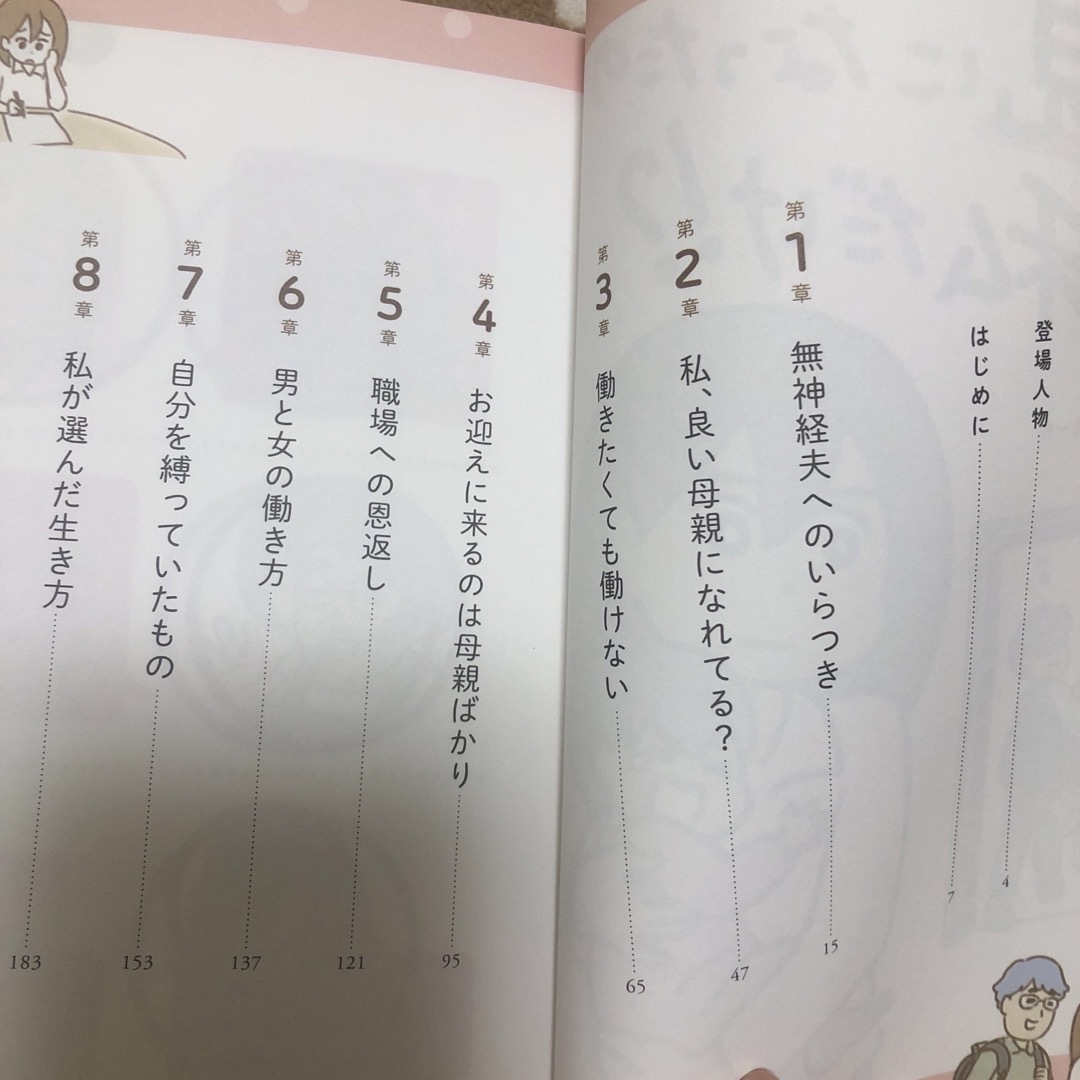 登場人物 4
はじめに 7
第1章 無神経夫へのいらつき 15
第2章 私、良い母親になれてる? 47
第3章 働きたくても働けない 65
第4章 お迎えに来るのは母親ばかり 95
第5章 職場への恩返し 121
第6章 男と女の働き方 137
第7章 自分を縛っていたもの 153
第8章 私が選んだ生き方 183